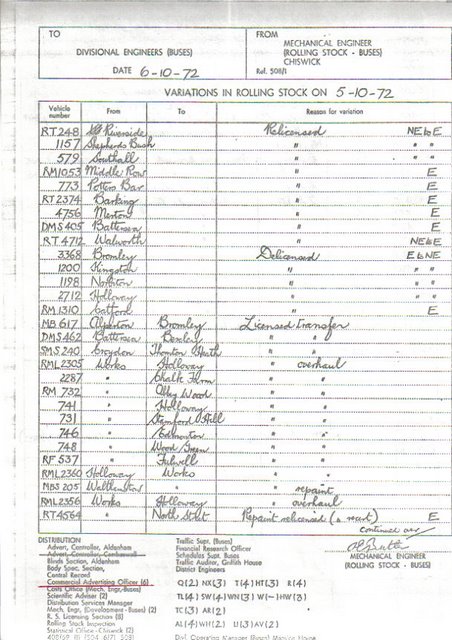 TO
DIVISIONAL ENGINEERS (BUSES)
DATE 6-10-72
FROM
MECHANICAL ENGINEER
(ROLLING STOCK - BUSES)
CHISWICK
Ref. 508/1
VARIATIONS IN ROLLING STOCK ON 5-10-72
Vehicle number From To Reason for variation
RT 248 Riverside Relicensed NE to E
1157 Shepherds Bush " " "
579 Southall " " "
RM 1053 Middle Row " E
773 Potters Bar " E
RT 2374 Barking " E
4756 Merton " E
DMS 405 Battersea " E
RT 4712 Walworth " NE to E
3368 Bromley Delicensed E to NE
1200 Kingston " " "
1198 Norbiton " " "
2712 Holloway " " "
RM 1310 Catford " E
MB 617 Alperton Bromley Licensed transfer
DMS 462 Battersea Bexley " "
SMS 240 Croydon Thornton Heath " "
RML 2305 Works Holloway " overhaul
2287 " Chalk Farm " "
RM 732 " Abbey Wood " "
741 " Holloway " "
731 " Stamford Hill " "
746 " Edmonton " "
748 " Wood Green " "
RF 537 " Fulwell " "
RML 2360 Holloway Works " "
MBS 205 Walthamstow " " repaint
RML 2356 Works Holloway " overhaul
RT 4564 " North Street Repaint relicensed (& recert) E
continued over
MECHANICAL ENGINEER
(ROLLING STOCK - BUSES)
DISTRIBUTION
Advert, Controller, Aldenham
Blinds Section, Aldenham
Body Spec. Section,
Central Record
Commercial Advertising Officer (6)
Costs Office (Mech. Engr. Buses)
Scientific Adviser (2)
Distribution Services Manager
Mech. Engr. (Development - Buses) (2)
R. S. Licensing Section (8)
Rolling Stock Inspection
Statistical Office - Chiswick (2)
Traffic Supt. (Buses)
Financial Research Officer
Schedules Supt. Buses
Traffic Auditor, Griffith House
District Engineers
Q(2) NX(3) T(4) HT(3) R(4)
TL(4) SW(4) WN(3) W(-) HW(3)
TC(3) AR(2)
AL(4) WH(2) U(3) ON(2)